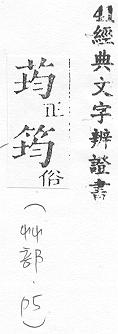 41經典文字辨證書
荺正
筠俗
(艸部.p5)